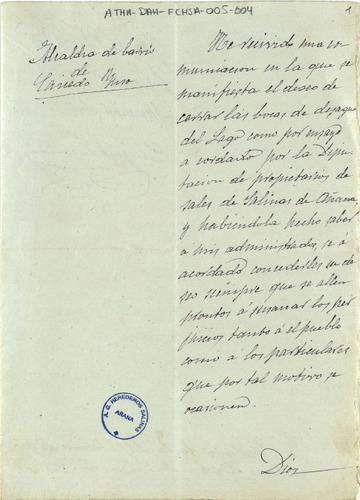 ATHA-DAH-FCHSA-005-004
1
Alcaldia de barrio
de
Caicedo Yuso
He recivido una co
municacion en la que se
manifiesta el deseo de
cerrar las bocas de desague
del Lago como por ensayo
acordado por la Dipu
tacion de propietarios de
sales de Salinas de Añana
y habiendola hecho saber
a mis administrados, se á
acordado concederles
no siempre que se allen
prontos á susanar los per
juicios tanto á el pueblo
como a los particulares
que por tal motivo se
ocasionen.
Dios
A. C. HEREDEROS SALINAS
AÑANA